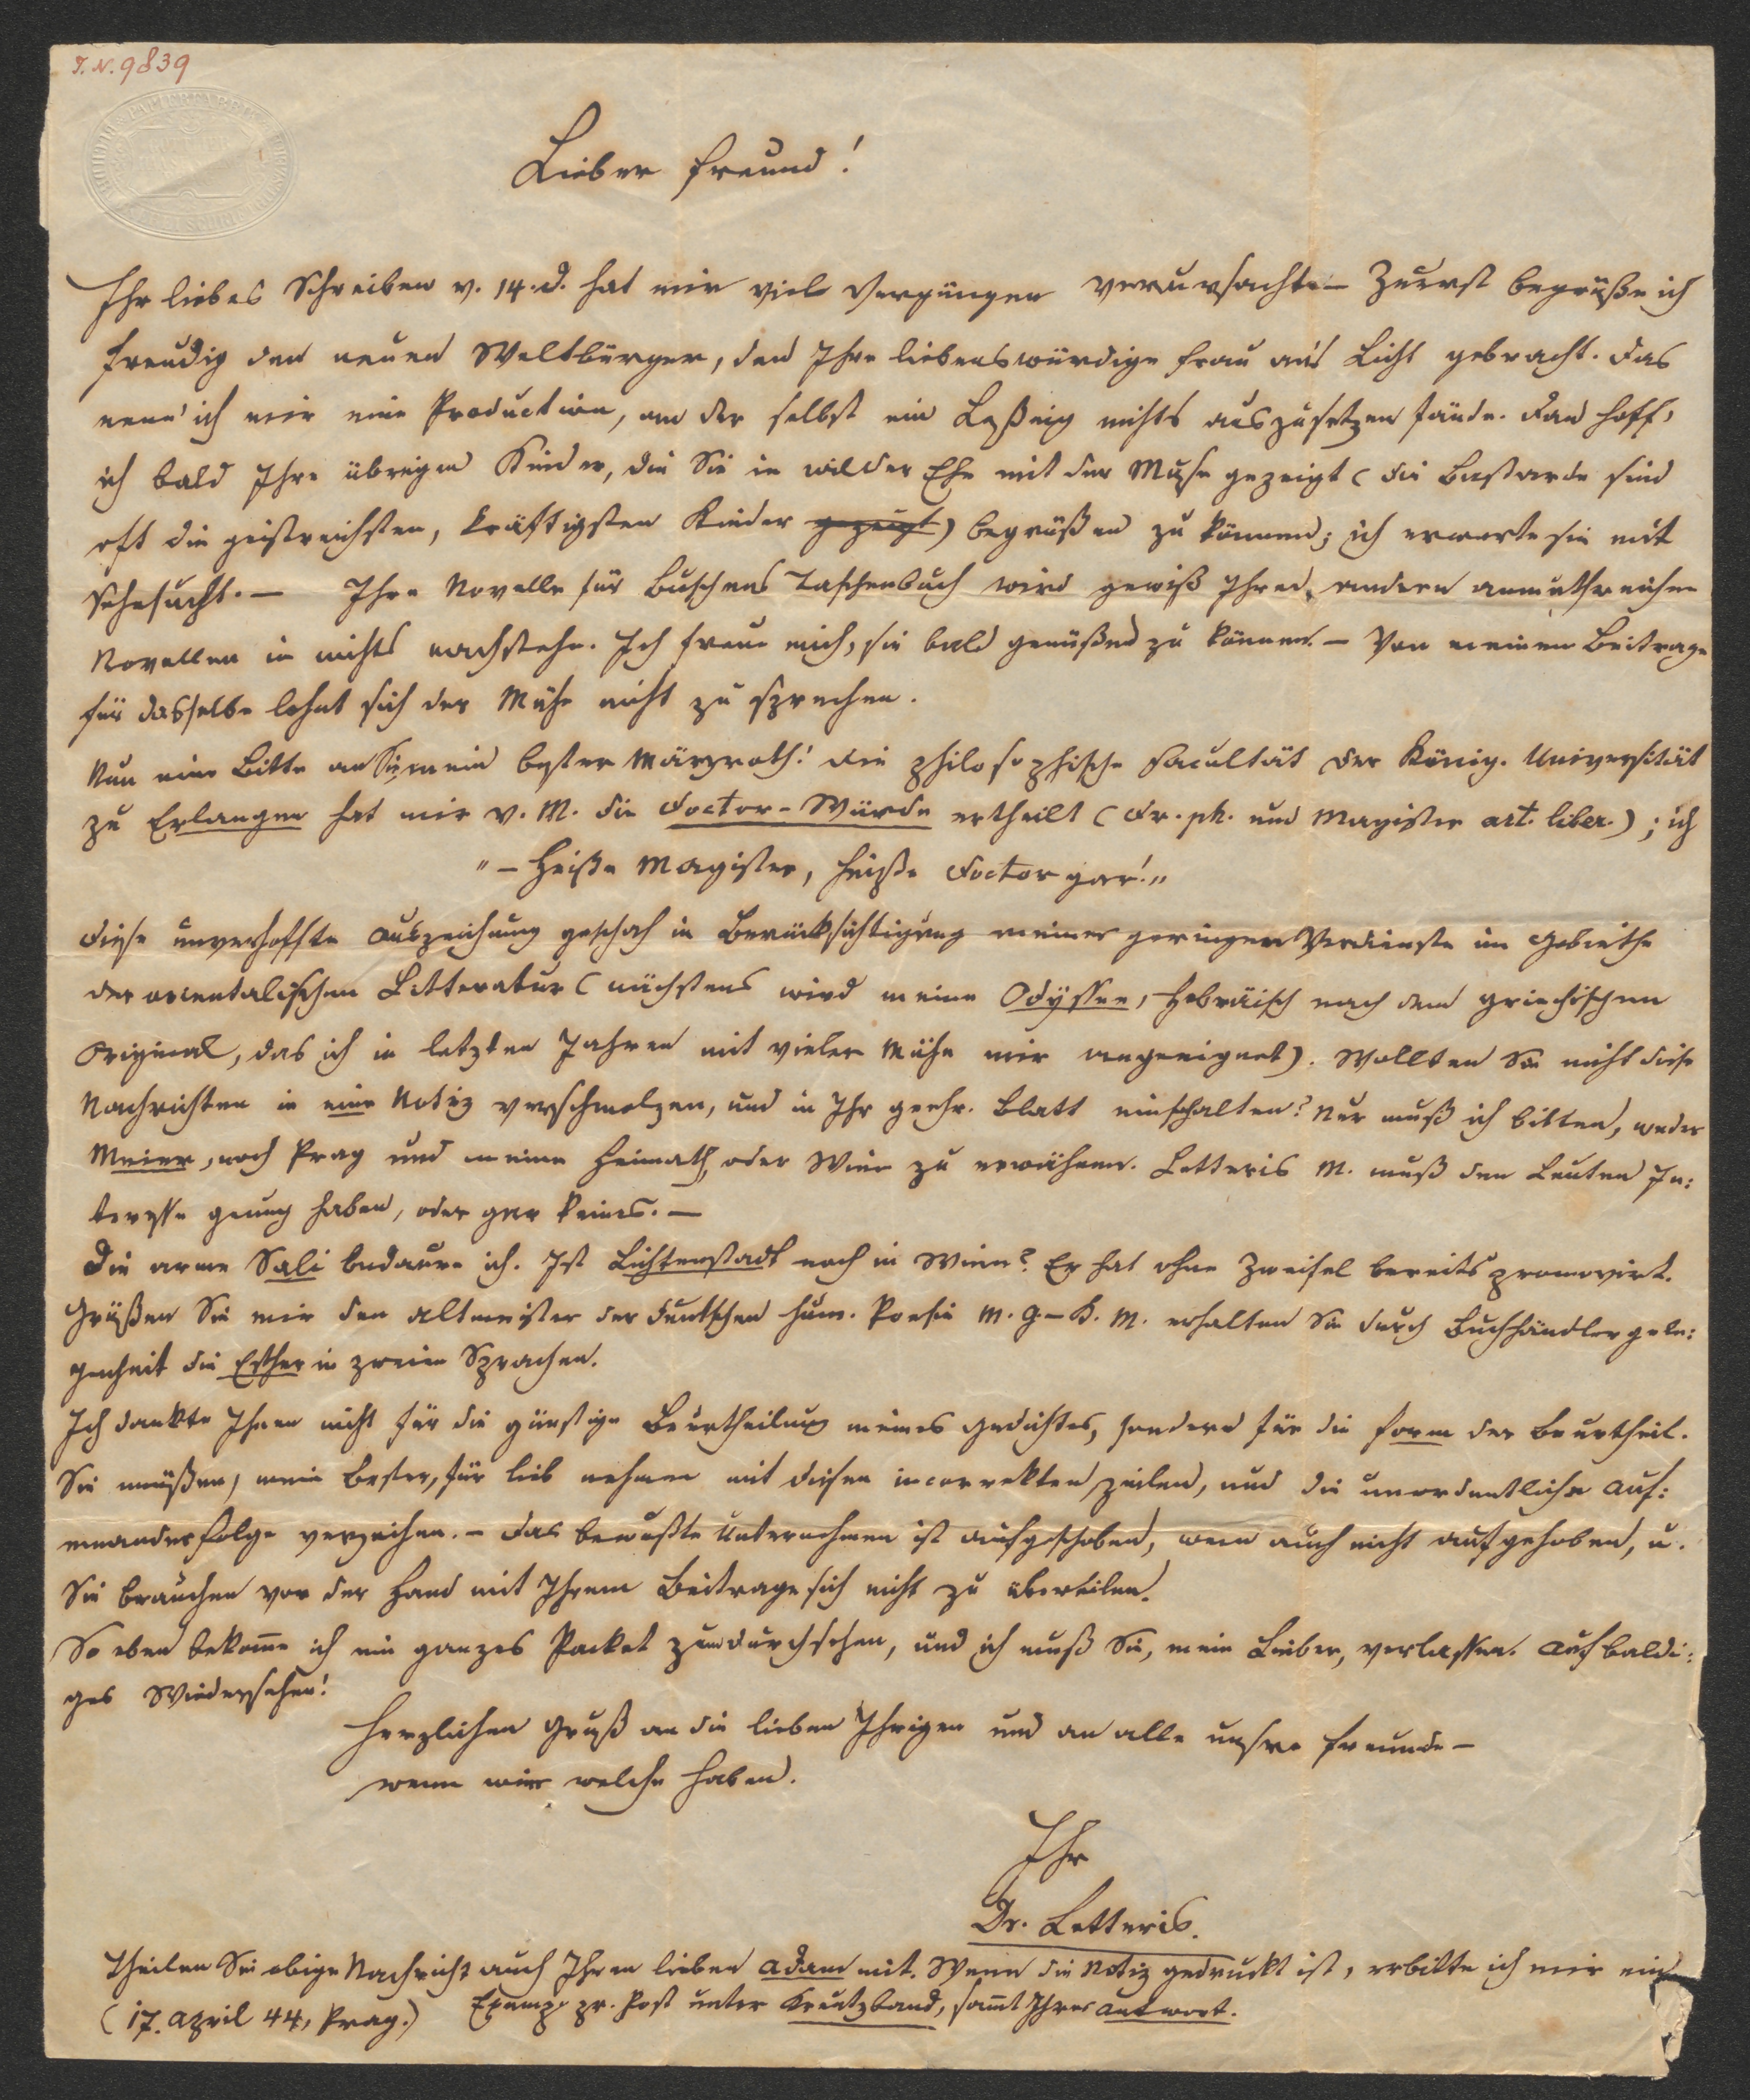 I.N. 9839
Lieber Freund!
Ihr liebes Schreiben v. 14. d. hat mir viel Vergnügen verursacht. – Zuerst begrüße ich
freudig den neuen Weltbürger, den Ihre liebenswürdige Frau an's Licht gebracht. Das
nenn' ich mir eine Production, an der selbst ein Leßing nichts auszusetzen fände. Dan hoff'
ich bald Ihre übrigen Kinder, die Sie in wilder Ehe mit der Muse gezeigt (die Bastarde sind
oft die geistreichsten, kräftigsten Kinder gezeugt) begrüßen zu können; ich erwarte sie mit
Sehnsucht. – Ihre Novelle für Buschens Taschenbuch wird gewiß Ihren andern anmuthreichen
Novellen in nichts nachstehn. Ich freue mich, sie bald genüßen zu können. – Von meinem Beitrage
für dasselbe lohnt sich der Mühe nicht zu sprechen.
Nun eine Bitte an Sie mein bester Märzroth! Die philosophische Facultät der König. Universität
zu Erlangen hat mir v. M. die Doctor-Würde ertheilt (Dr. ph. und Magister art. liber.); ich
"– Heiße Magister, heiße Doctor gar!"
Diese unverhoffte Auszeichnung geschah in Berücksichtigung meiner geringen Verdienste im Gebiethe
der orientalischen Litteratur (nächstens wird meine Odyssee, hebräisch nach dem griechischen
Original, das ich in letzten Jahren mit vieler Mühe mir angeeignet). Wollten Sie nicht diese
Nachrichten in eine Notiz verschmelzen, und in Ihr geehr. Blatt einschalten? Nur muß ich bitten, weder
Meier, noch Prag und meine Heimath, oder Wien zu erwähnen. Letteris M. muß den Leuten In:
teresse genug haben, oder gar keines. –
Die arme Sali bedaure ich. Ist Lichtenstadt noch in Wien? Er hat ohne Zweifel bereits promovirt.
Grüßen Sie mir den Altmeister der deutschen hum. Poesie M. G – D. M. erhalten Sie durch Buchhändlergele:
genheit die Esther in zweien Sprachen.
Ich dankte Ihnen nicht für die günstige Beurtheilung meines Gedichtes, sondern für die Form der Beurtheil.
Sie müßen, mein Bester, für lieb nehmen mit diesen incorrekten Zeilen, und die unordentliche Auf:
einanderfolge verzeihen. – Das bewußte Unternehmen ist aufgeschoben, wenn auch nicht aufgehoben, u.
Sie brauchen vor der Hand mit Ihrem Beitrage sich nicht zu übereilen.
So eben bekom̅e ich ein ganzes Packet zum durchsehen, und ich muß Sie, mein Lieber, verlassen. Auf baldi:
ges Wiedersehen!
Herzlichen Gruß an die lieben Ihrigen und an alle unsre Freunde –
wenn wir welche haben.
Ihr
Dr. Letteris.
Theilen Sie obige Nachricht auch Ihrem lieben Adam mit. Wenn die Notiz gedruckt ist, erbitte ich mir ein
(17. April 44, Prag.) Exemp. pr. Post unter Kreutzband, sam̅t Ihrer Antwort.